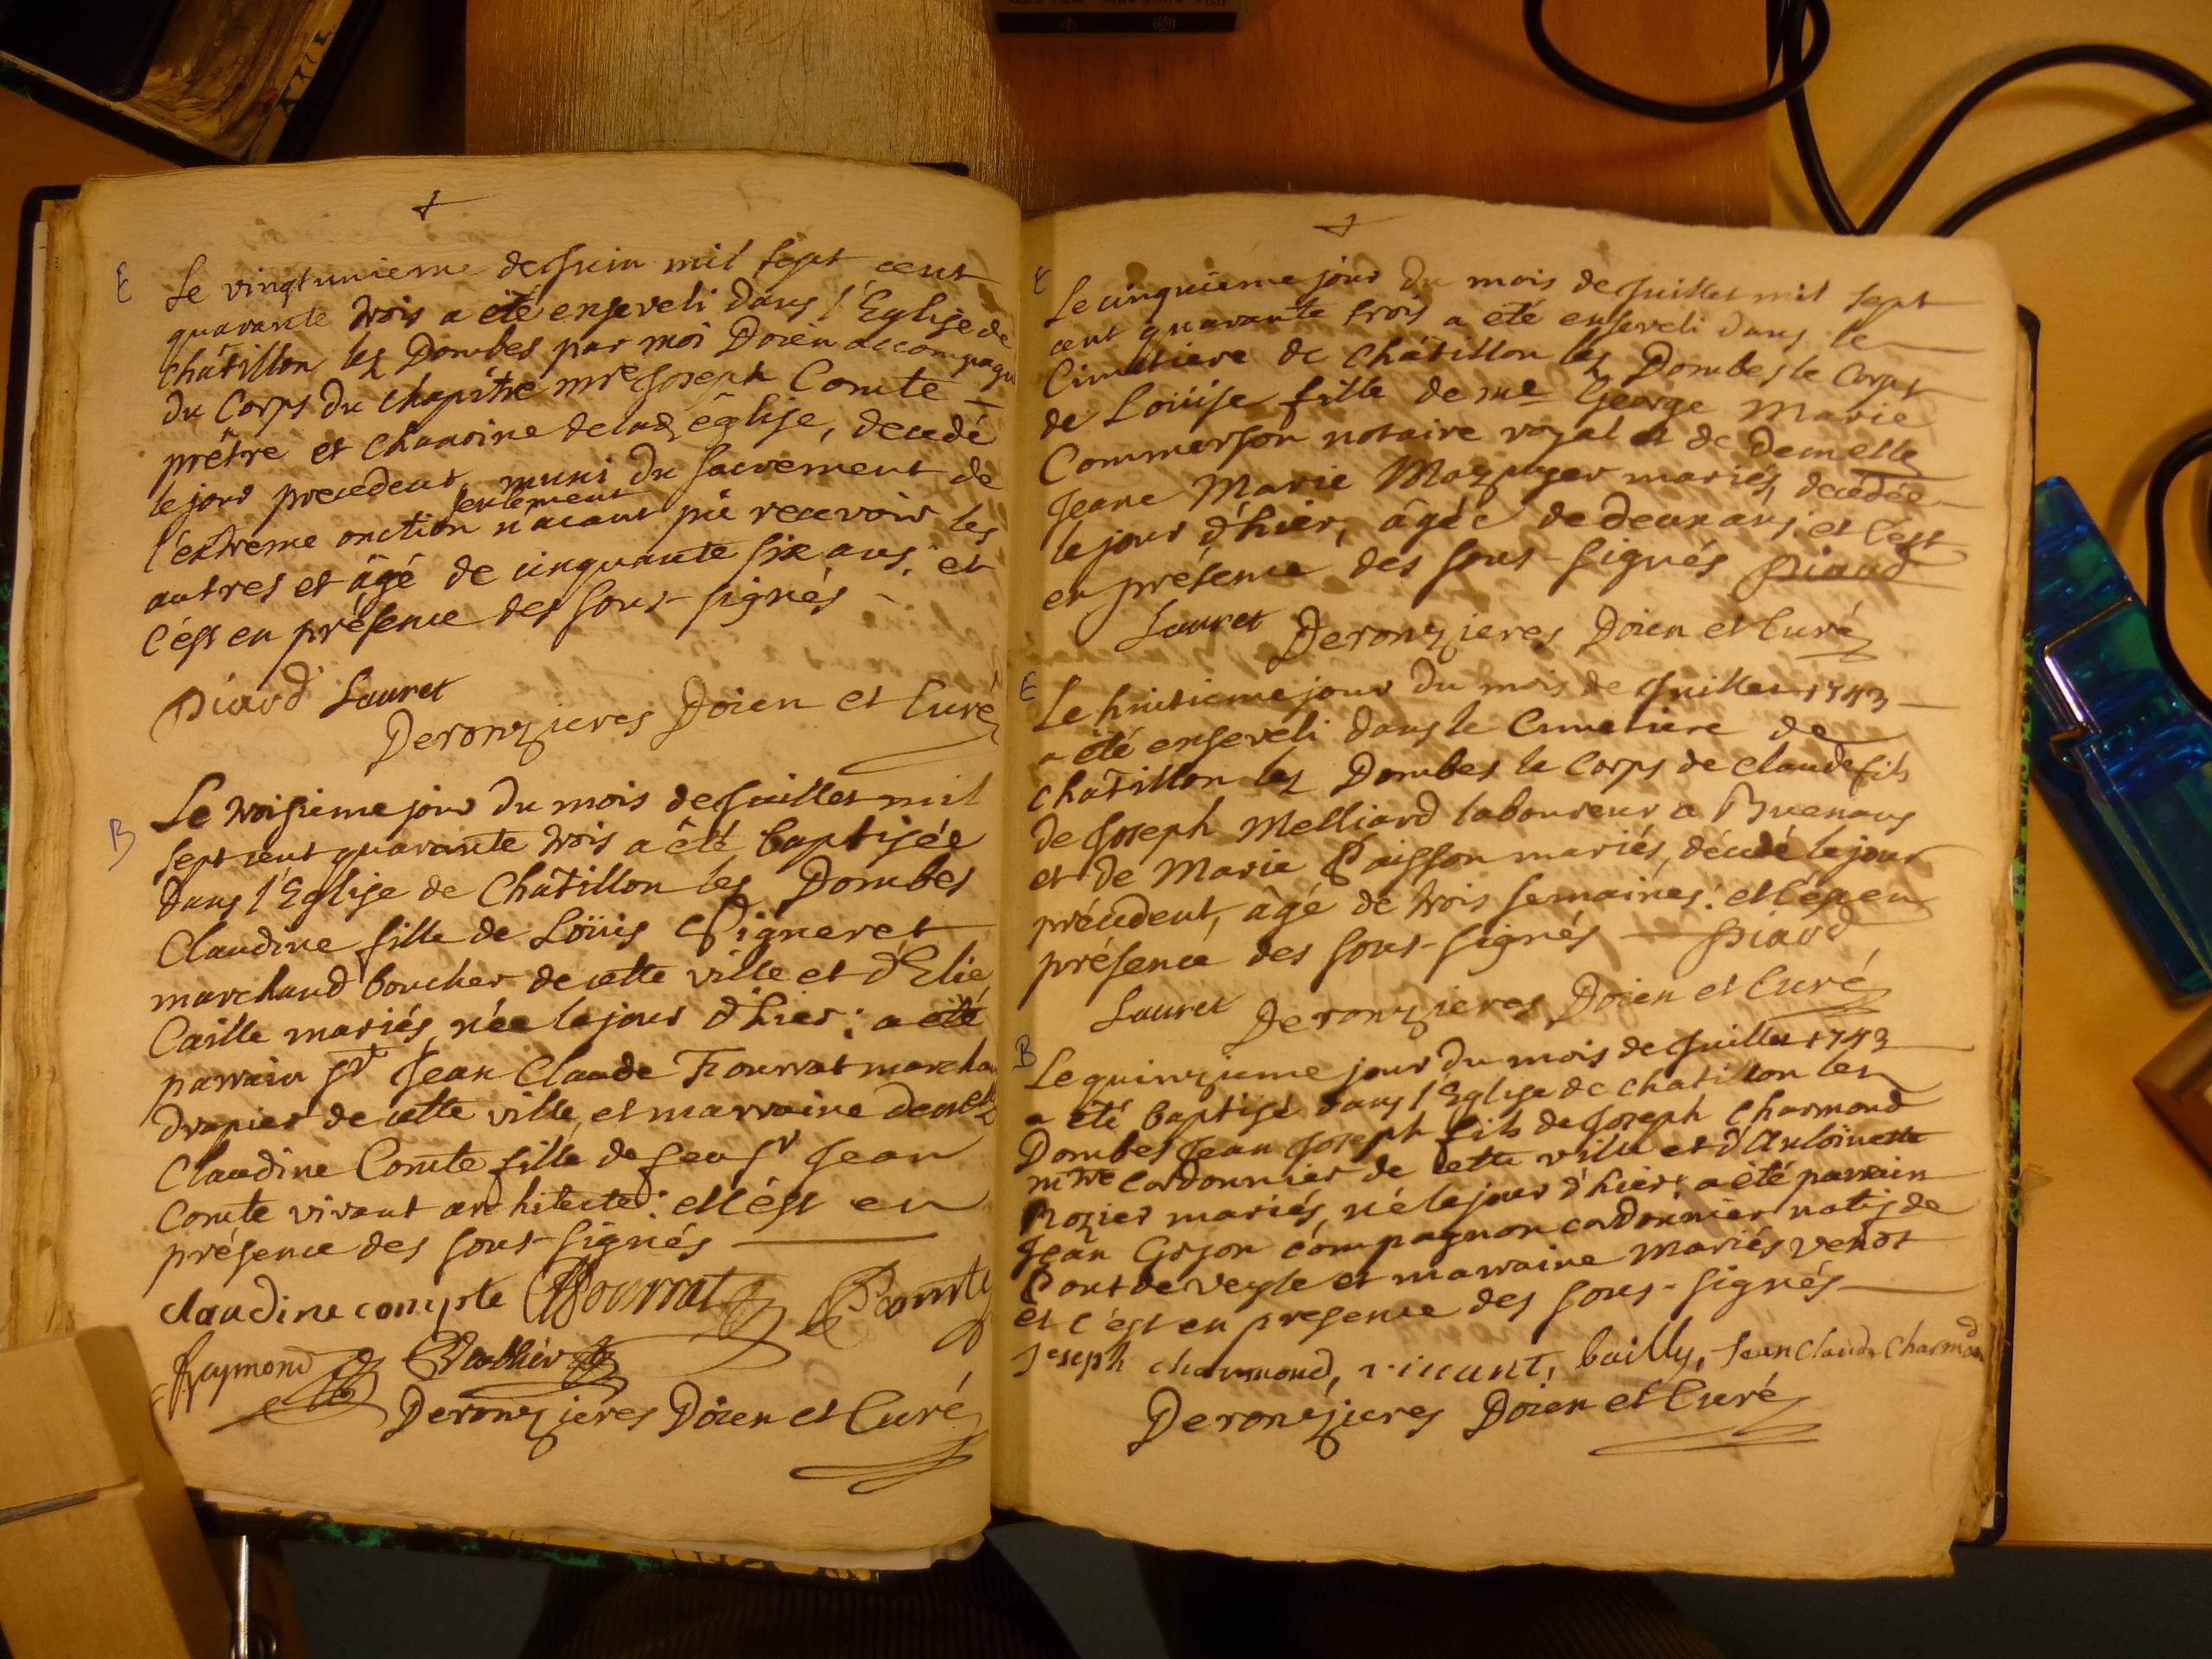 E
Le vingtunieme de Juin mil sept cent
quarante trois a été enseveli dans l'Eglise de
châtillon les Dombes par moi Doien accompagné
du Corps du chapître mre Joseph Comte
prêtre et chanoine de lad. église, decedé
le jour precedent, muni du sacrement de
l'extreme onction seulement n'aiant pû recevoir les
autres et âgé de cinquante six ans; et
c'est en présence des sous-signés
Diard Lauret
Deronzieres Doien et Curé
B
Le troisieme jour du mois de Juillet mil
sept cent quarante trois a été baptisée
dans l'Eglise de Châtillon les Dombes
Claudine fille de Loüis Pigneret
marchand boucher de cette ville et d'Elie
Caille mariés, née le jour d'hier: a été
parrain Sr Jean Claude Tiourrat marcha
drapier de cette ville, et marraine demelle
Claudine Comte fille de feu Sr Jean
Comte vivant architecte: et c'est en
présence des sous-signés
claudine compte Comte
Raymond
Deronzieres Doien et Curé
E
Le cinquieme jour du mois de Juillet mil sept
cent quarante trois a été enseveli dans le
Cimetiere de châtillon les Dombes le Corps
de Loüise fille de me George Marie
Commerson notaire royal et de demelle
Jeane Marie Mazuyer mariés, decedée
le jour d'hier, âgée de deux ans; et c'est
en présence des sous-signés Diard
Lauret Deronzieres Doien et Curé
E
Le huitieme jour du mois de Juillet 1743
a été enseveli dans le Cimetiere de
châtillon les Dombes le Corps de claude fils
de Joseph Melliard laboureur a Buenans
et de Marie Paisson mariés, décedé le jour
précedent, âgé de trois semaines: et c'est en
présence des sous-signés Diard
Lauret Deronzieres Doien et Curé
B
Le quinzieme jour du mois de Juillet 1743
a été baptisé dans l'Eglise de chatillon les
Dombes Jean Joseph fils de Joseph Charmond
mtre cordonnier de cette ville et d'Antoinette
Rozier mariés, né le jour d'hier: a été parrain
Jean Gojon compagnon cordonnier natif de
Pont de veyle et marraine Mariés venot
et c'est en presence des sous-signés
Joseph charmond, vincent, bailly, Jean Claude Charmond
Deronzieres Doien et Curé